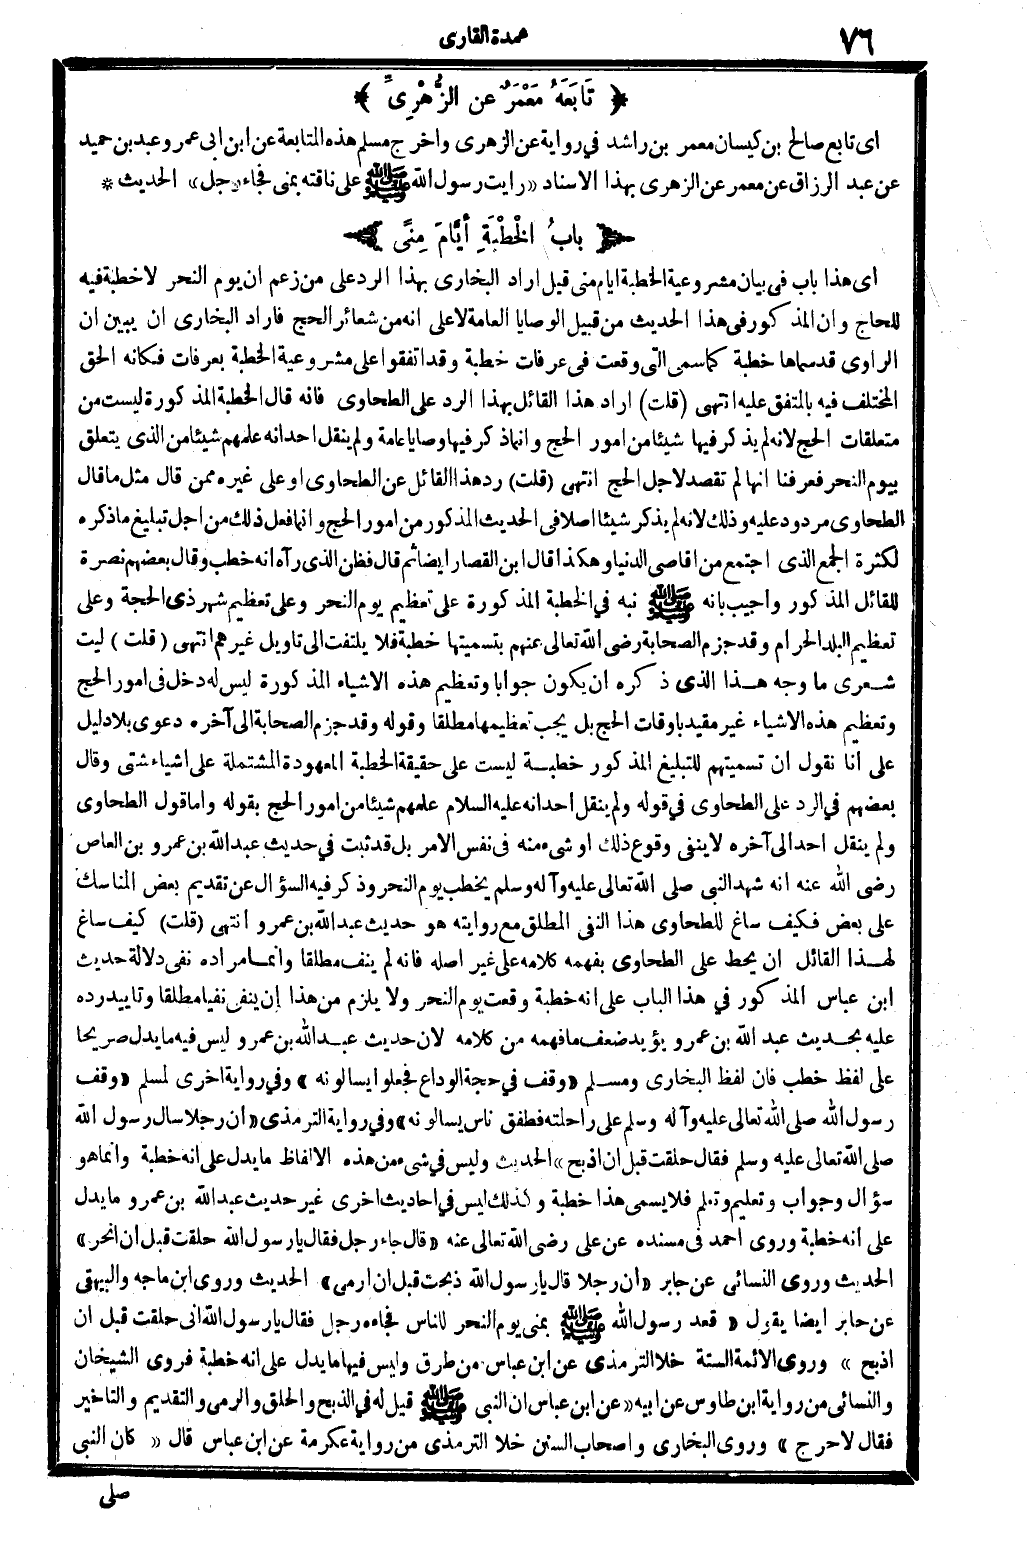 ٧٦
عمدة القارى
﴿ تَابَعَهُ مَعْمَرٌ عن الزُّهْرِىِّ ﴾
اى تابع صالح بن كيسان معمر بن راشد في رواية عن الزهرى واخرج مسلم هذه المتابعة عن ابن ابى عمر وعبد بن حميد
عن عبد الرزاق عن معمر عن الزهرى بهذا الاسناد «رايت رسول الله ﷺ على ناقته بمنى فجاءه رجل» الحديث *
﴿ بابُ الخُطْبَةِ أيَّامَ مِنًى ﴾
اى هذا باب فى بيان مشروعية الخطبة ايام منى قيل اراد البخارى بهذا الرد على من زعم ان يوم النحر لا خطبة فيه
للحاج وان المذكور فى هذا الحديث من قبيل الوصايا العامة لا على انه من شعائر الحج فاراد البخارى ان يبين ان
الراوى قد سماها خطبة كما سمى التى وقعت فى عرفات خطبة وقد اتفقوا على مشروعية الخطبة بعرفات فكانه الحق
المختلف فيه بالمتفق عليه انتهى (قلت) اراد هذا القائل بهذا الرد على الطحاوى فانه قال الخطبة المذكورة ليست من
متعلقات الحج لانه لم يذكر فيها شيئا من امور الحج وانما ذكر فيها وصايا عامة ولم ينقل احد انه علمهم شيئا من الذى يتعلق
بيوم النحر فعرفنا انها لم تقصد لاجل الحج انتهى (قلت) رد هذا القائل عن الطحاوى او على غيره ممن قال مثل ما قال
الطحاوى مردود عليه وذلك لانه لم يذكر شيئا اصلا فى الحديث المذكور من امور الحج وانما فعل ذلك من اجل تبليغ ما ذكره
لكثرة الجمع الذى اجتمع من اقاصى الدنيا وهكذا قال ابن القصار ايضا ثم قال فظن الذى رآه انه خطب وقال بعضهم نصرة
للقائل المذكور واجيب بانه ﷺ نبه في الخطبة المذكورة على تعظيم يوم النحر وعلى تعظيم شهر ذى الحجة وعلى
تعظيم البلد الحرام وقد جزم الصحابة رضى الله تعالى عنهم بتسميتها خطبة فلا يلتفت الى تاويل غيرهم انتهى (قلت) ليت
شعرى ما وجه هذا الذى ذكره ان يكون جوابا وتعظيم هذه الاشياء المذكورة ليس له دخل فى امور الحج
وتعظيم هذه الاشياء غير مقيد باوقات الحج بل يجب تعظيمها مطلقا وقوله وقد جزم الصحابة الى آخره دعوى بلا دليل
على انا نقول ان تسميتهم للتبليغ المذكور خطبة ليست على حقيقة الخطبة المعهودة المشتملة على اشياء شتى وقال
بعضهم في الرد على الطحاوى في قوله ولم ينقل احد انه عليه السلام علمهم شيئا من امور الحج بقوله واما قول الطحاوى
ولم ينقل احد الى آخره لا ينفى وقوع ذلك او شىء منه فى نفس الامر بل قد ثبت في حديث عبد الله بن عمرو بن العاص
رضى الله عنه انه شهد النبى صلى الله تعالى عليه وآله وسلم يخطب يوم النحر وذكر فيه السؤال عن تقديم بعض المناسك
على بعض فكيف ساغ للطحاوى هذا النفى المطلق مع روايته هو حديث عبد الله بن عمرو انتهى (قلت) كيف ساغ
لهذا القائل ان يحط على الطحاوى بفهمه كلامه على غير اصله فانه لم ينف مطلقا وانما مراده نفى دلالة حديث
ابن عباس المذكور في هذا الباب على انه خطبة وقعت يوم النحر ولا يلزم من هذا إن ينفى نفيا مطلقا وتاييد رده
عليه بحديث عبد الله بن عمرو يؤيد ضعف ما فهمه من كلامه لان حديث عبد الله بن عمرو ليس فيه ما يدل صريحا
على لفظ خطب فان لفظ البخارى ومسلم «وقف في حجة الوداع فجعلوا يسالونه» وفي رواية اخرى لمسلم «وقف
رسول الله صلى الله تعالى عليه وآله وسلم على راحلته فطفق ناس يسالونه» وفي رواية الترمذى «ان رجلا سال رسول الله
صلى الله تعالى عليه وسلم فقال حلقت قبل ان اذبح» الحديث وليس في شىء من هذه الالفاظ ما يدل على انه خطبة وانما هو
سؤال وجواب وتعليم وتعلم فلا يسمى هذا خطبة وكذلك ليس في احاديث اخرى غير حديث عبد الله بن عمرو ما يدل
على انه خطبة وروى احمد فى مسنده عن على رضى الله تعالى عنه «قال جاء رجل فقال يا رسول الله حلقت قبل ان انحر»
الحديث وروى النسائى عن جابر «ان رجلا قال يا رسول الله ذبحت قبل ان ارمى» الحديث وروى ابن ماجه والبيهقى
عن جابر ايضا يقول « قعد رسول الله ﷺ بمنى يوم النحر للناس فجاءه رجل فقال يا رسول الله انى حلقت قبل ان
اذبح » وروى الائمة الستة خلا الترمذى عن ابن عباس من طرق وليس فيها ما يدل على انه خطبة فروى الشيخان
والنسائى من رواية ابن طاوس عن ابيه «عن ابن عباس ان النبى ﷺ قيل له في الذبح والحلق والرمى والتقديم والتاخير
فقال لا حرج » وروى البخارى واصحاب السنن خلا الترمذى من رواية عكرمة عن ابن عباس قال « كان النبى
صلى